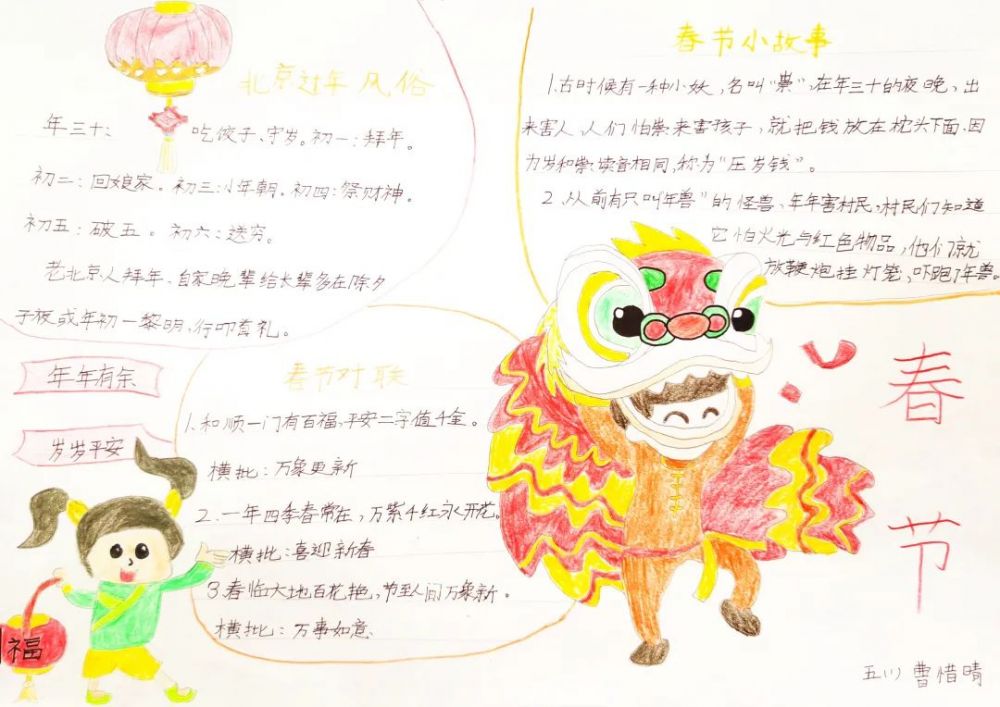 北京过年风俗
年三十：吃饺子、守岁。初一：拜年。
初二：回娘家。初三：小年朝。初四：祭财神。
初五：破五。初六：送穷。
老北京人拜年、自家晚辈给长辈多在除夕
子夜或年初一黎明，行叩首礼。
春节小故事
1.古时候有一种小妖，名叫“祟”，在年三十的夜晚，出
来害人，人们怕祟来害孩子，就把钱放在枕头下面，因
为岁和祟读音相同，称为“压岁钱”。
2、从前有只叫“年兽”的怪兽、年年害村民，村民们知道
它怕火光与红色物品，他们就
放鞭炮，挂灯笼，吓跑了年兽。
年年有余
岁岁平安
春节对联
1.和顺一门有百福，平安二字值千金。
横批：万象更新
2.一年四季春常在，万紫千红永开花。
横批：喜迎新春
3.春临大地百花艳，节至人间万象新。
横批：万事如意
福
春
节
五(1) 曹惜晴